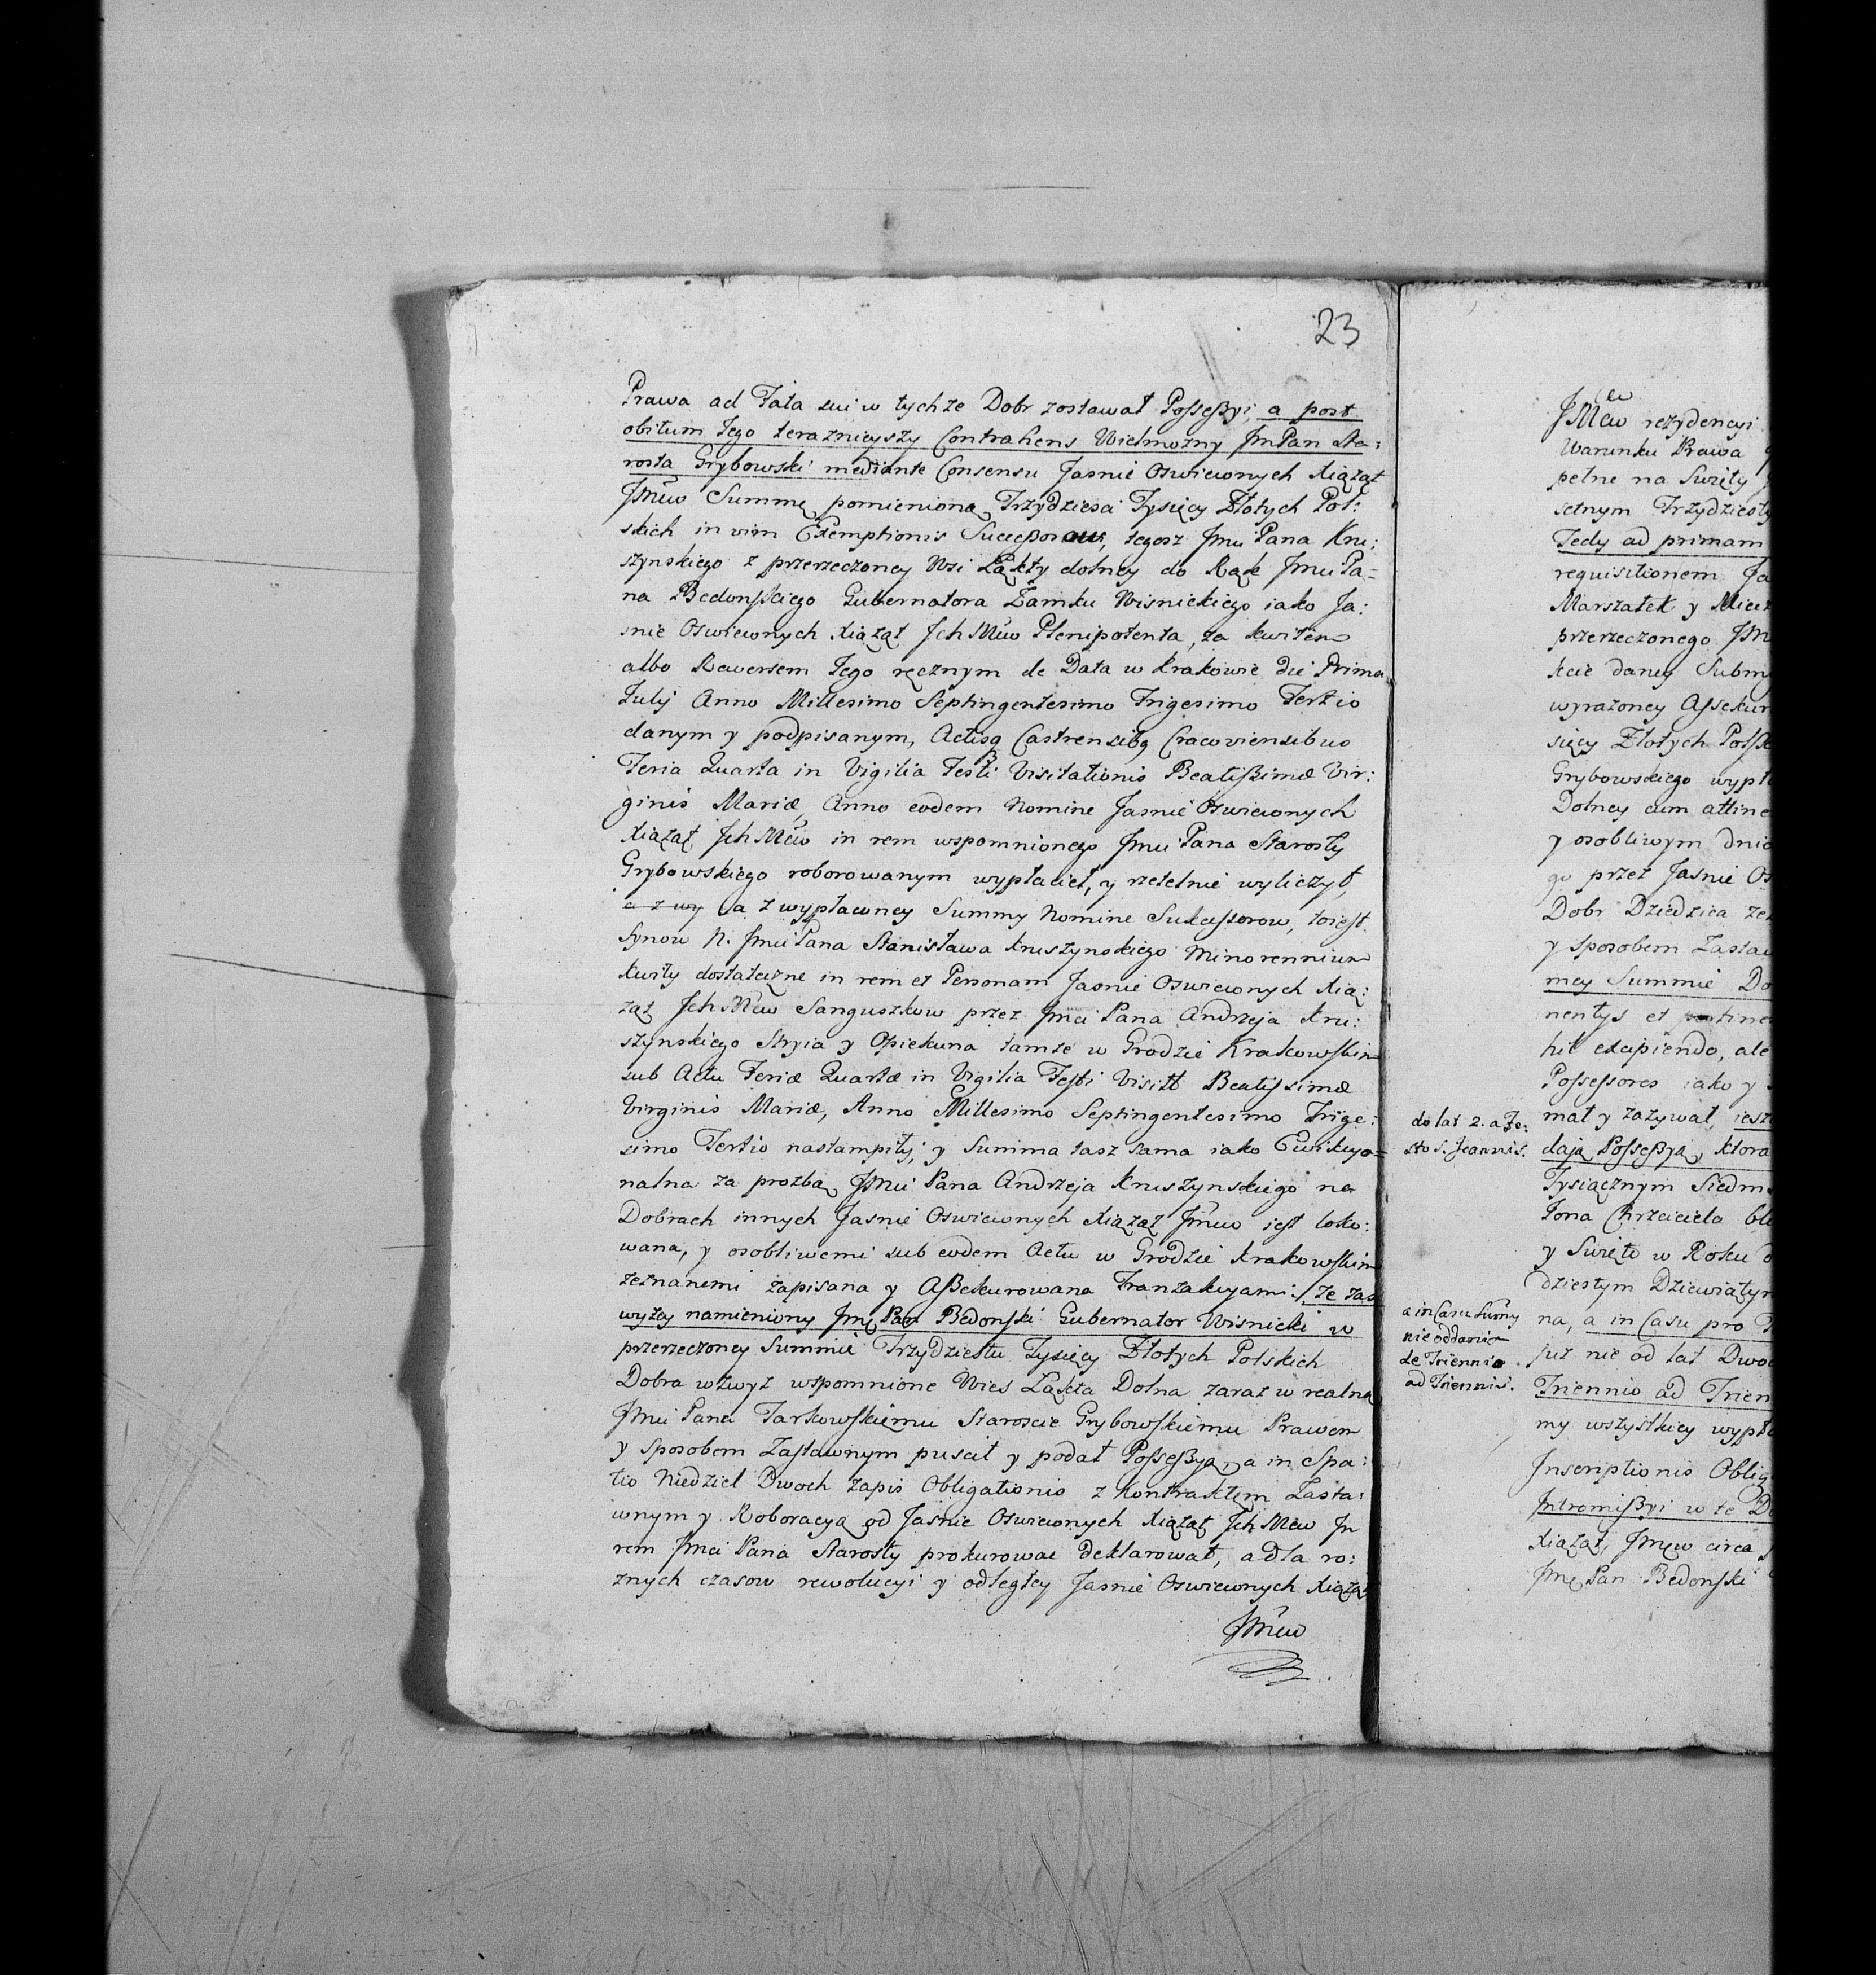 23
Prawa ad Fata sui w tychze Dobr zostawał Possessyi, a post
obitum Jego teraznieyszy Contrahens Wielmozny JmPan Sta:
rosta Grybowski mediante Consensu Jasnie Oswieconych Xiąząt
Jmćiw Summę pomienioną Trzydziesci Tysięcy Złotych Pol:
skich in vim Exemptionis Successorow, tegosz Jmci Pana Kru:
szynskiego z przerzeczoney Wsi Łąkty dolney do Rąk Jmci Pa=
na Bedonskiego Gubernatora Zamku Wisnickiego iako Ja:
snie Oswieconych Xiąząt Jch Mćiw Plenipotenta, za kwitem
albo Rewersem Jego ręcznym de Data w Krakowie die Prima
Julij Anno Millesimo Septingentesimo Trigesimo Tertio
danym y podpisanym, Actisq Castrensibq Cracoviensibus
Feria Quarta in Vigilia Festi Visitationis Beatissimæ Vir:
ginis Mariæ, Anno eodem Nomine Jasnie Oswieconych
Xiąząt Jch Mćiw in rem wspomnionego Jmci Pana Starosty
Grybowskiego roborowanym wypłacieł, y rzetelnie wyliczył,
a z wy a z wypłaconey Summy Nomine Sukcessorow, toiest
Synow N. Jmci Pana Stanisława Kruszynskiego Minorennium
kwity dostateczne in rem et Personam Jasnie Oswieconych Xią:
ząt Jch Mćiw Sanguszkow przez Jmci Pana Andrzeja Kru:
szynskiego Stryia y Opiekuna tamze w Grodzie Krakowskim
sub Actu Feriæ Quartæ in Vigilia Festi Visitt Beatissimæ
Virginis Mariæ, Anno Millesimo Septingentesimo Trige:
simo Tertio nastąmpiły, y Summa tasz sama iako Ewikcyo=
nalna za prozbą Jmci Pana Andrzeja Kruszynskiego na
Dobrach innych Jasnie Oswieconych Xiąząt Jmćiw jest loko:
wana, y osobliwemi sub eodem Actu w Grodzie Krakowskim
zeznanemi zapisana y Assekurowana Tranzakcyami:/ ze zas
wyzey namieniony Jmę Pan Bedonski Gubernator Wisnicki w
przerzeczoney Summie Trzydziestu Tysięcy Złotych Polskich
Dobra wzwyz wspomnione Wies Łąkta Dolna zaraz w realną
Jmci Panu Tarkowskiemu Staroscie Grybowskiemu Prawem
y sposobem Zastawnym puscił y podał Possessyą, a in Spa:
tio Niedziel Dwoch zapis Obligationis z Kontraktem Zasta:
wnym y Roboracyą od Jasnie Oswieconych Xiąząt Jch Mćiw Jn
rem Jmci Pana Starosty prokurowac deklarował, a dla ro:
znych czasow rewolucyi y odległey Jasnie Oswieconych Xiąząt
Jmćiw
JMćiw rezydencyi
Warunku Prawa
pełne na Swięty
setnym Trzydziesty
Tedy ad primam
requisitionem Ja
Marszałek y Miecz
przerzeczonego JM
kcie daney Subm
wyrazoney Assekur
sięcy Złotych Polsk
Grybowskiego wypł
Dolney cum attine
y osobliwym dnia
go przez Jasnie Os
Dobr Dziedzica ze
y sposobem Zastaw
mey Summie Do
nentys et
hil excipiendo, ale
Possessores iako y
do lat 2. a Fe:
sto S. Joannis.
mał y zazywał, iesz
dają Possessyą, ktora
Tysiącznym Siedm
Jona Chrzciciela bli
y Swięto w Roku
dziestym Dziewiątym
a in Casu Sumy
nie oddania
de Triennio
ad Triennia.
na, a in Casu pro
juz nie od lat Dwoc
Triennio ad Trien
my wszystkiey wypła
Jnscriptionis Oblig
Jntromissyi w te Do
Xiąząt, Jmćiw circa
Jmę Pan Bedonski